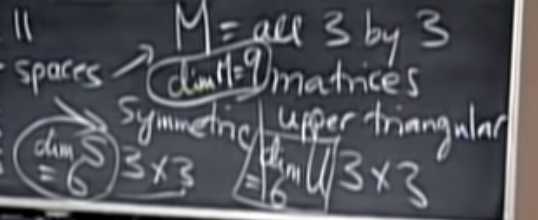 M = all 3 by 3
spaces dim M=9 matrices
symmetric upper triangular
dim S = 6 3×3 dim U = 6 3×3